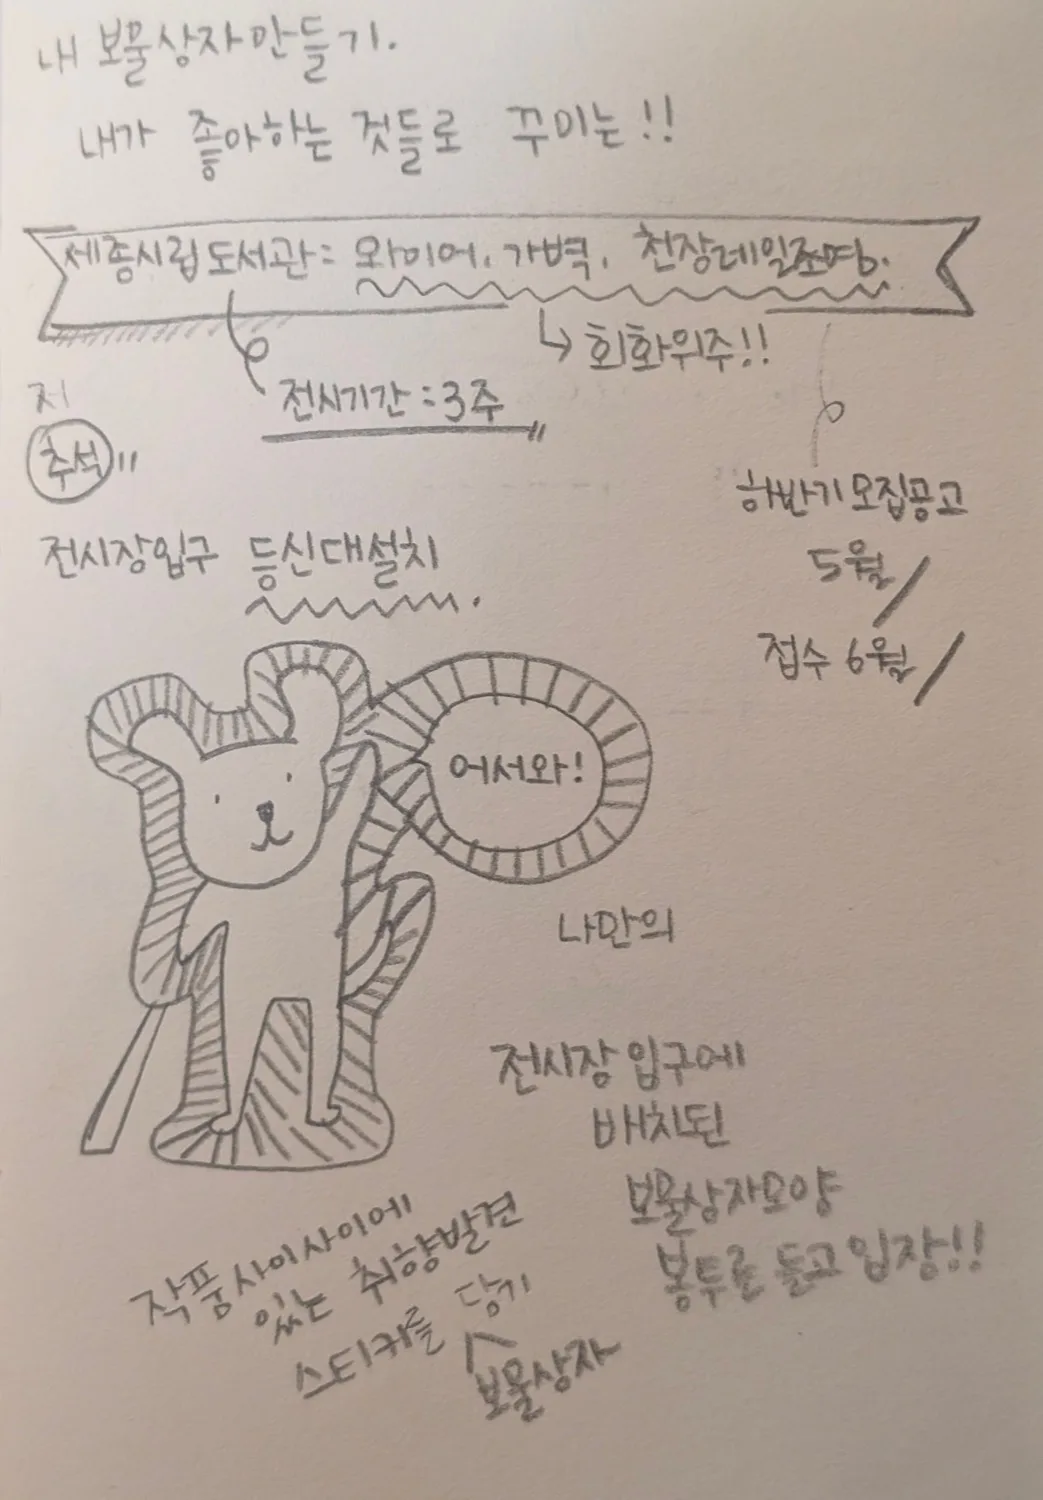 내 보물상자만들기.
내가 좋아하는 것들로 꾸미는!!
세종시립도서관: 와이어, 가벽, 천장레일조명.
↳ 회화위주!!
전시기간:3주
지
추석"
하반기모집공고
5월/
접수 6월/
전시장입구 등신대설치.
어서와!
나만의
전시장 입구에
배치된
보물상자모양
봉투를 들고 입장!!
작품사이사이에
있는 취향발견
스티커를 담기
보물상자